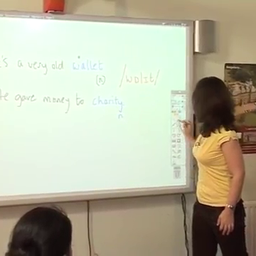 's a very old wallet
n
/wɒlɪt/
e gave money to charity
n